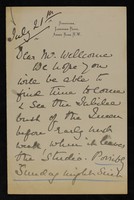 July 21st
Dear Mr. Wellcome
We hope you
will be able to
find time to come
& see the Jubilee
bust of the Queen
before early next
week, when it leaves
the Studio. Possibly
Sunday might suit